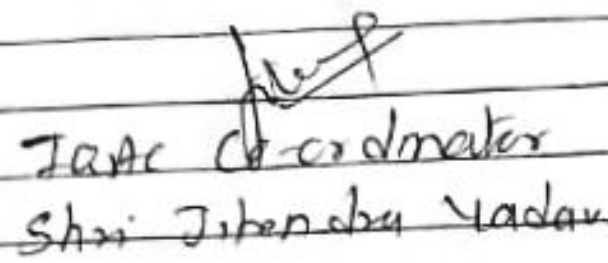 IQAC Co-ordinator
Shri Jitendra Yadav